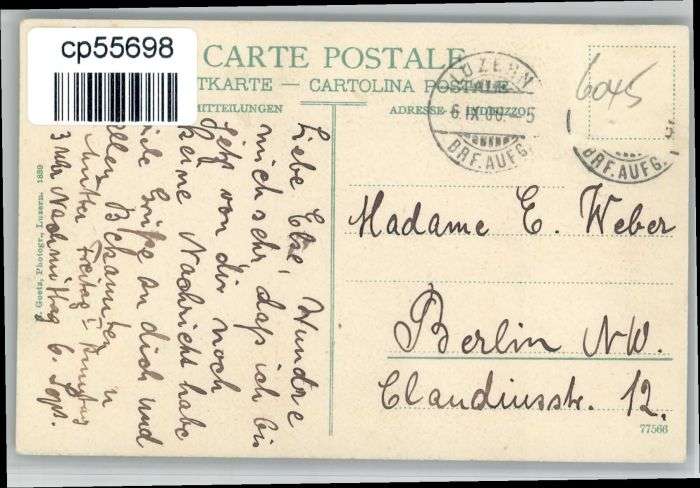 cp55698
CARTE POSTALE
TKARTE — CARTOLINA POSTALE
MITTEILUNGEN
ADRESSE
INDIRIZZO
LUZERN
6.IX.06.-5
BRF.AUFG.
BRF.AUFG.
6045
Liebe Else, Wundre
mich sehr, dass ich bis
jetzt von dir noch
keine Nachricht habe
viele Grüsse an dich und
alle Bekannten u
Mutter Freitag
3 Uhr Nachmittag 6. Sept.
Madame E. Weber
Berlin NW.
Claudiusstr. 12.
Goetz, Photogr., Luzern. 1880
77566